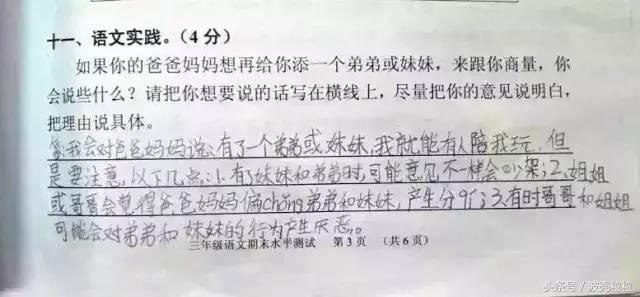 十一、语文实践。(4分)
如果你的爸爸妈妈想再给你添一个弟弟或妹妹，来跟你商量，你
会说些什么？请把你想要说的话写在横线上，尽量把你的意见说明白，
把理由说具体。
我会对爸爸妈妈说：有了一个弟弟或妹妹，我就能有人陪我玩，但
是要注意以下几点：1.有了妹妹和弟弟时，可能意见不一样会吵架；2.姐姐
或哥哥会觉得爸爸妈妈偏chǒng弟弟和妹妹，产生分；3.有时哥哥和姐姐
可能会对弟弟和妹妹的行为产生厌恶。
三年级语文期末水平测试 第3页 (共6页)
头条号/波壳粒粒